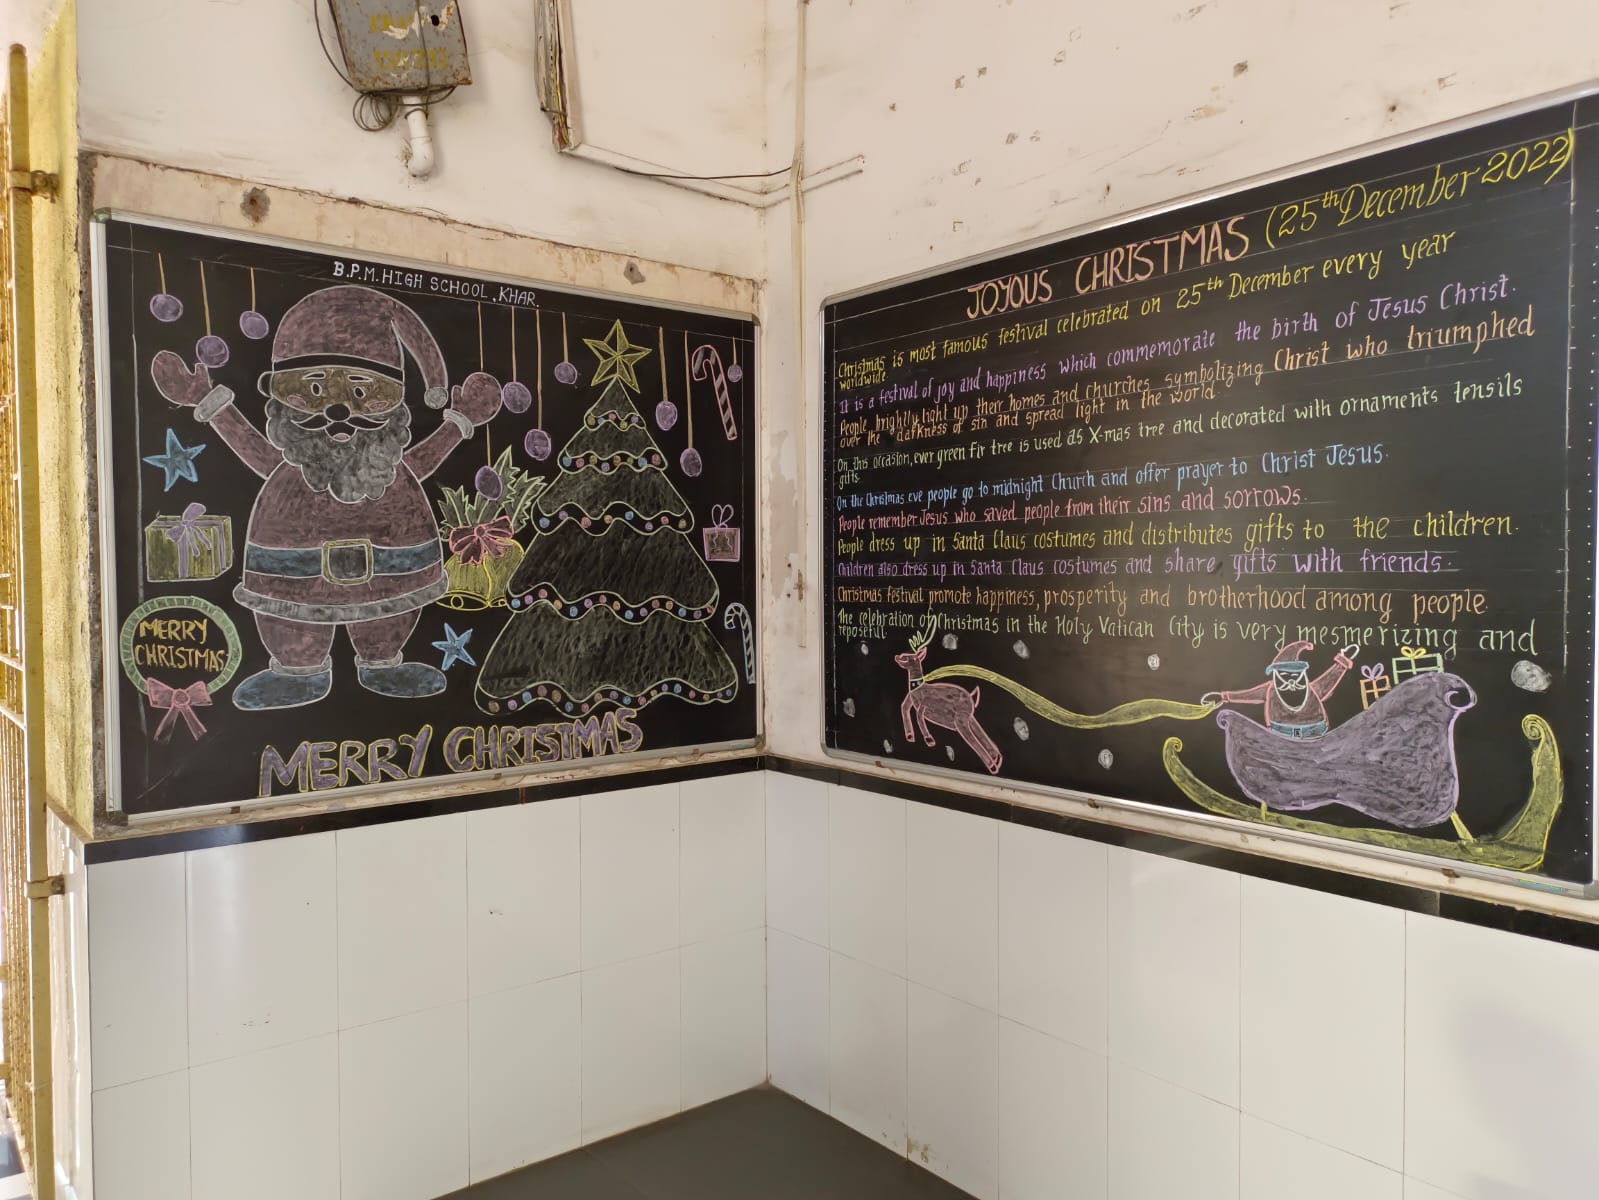 B.P.M. HIGH SCHOOL, KHAR.
MERRY
CHRISTMAS
MERRY CHRISTMAS
JOYOUS CHRISTMAS (25th December 2022)
Christmas is most famous festival celebrated on 25th December every year
worldwide.
It is a festival of joy and happiness which commemorate the birth of Jesus Christ.
People brightly light up their homes and churches symbolizing Christ who triumphed
over the darkness of sin and spread light in the world.
On this occasion, ever green fir tree is used as X-mas tree and decorated with ornaments tensils
gifts.
On the Christmas eve people go to midnight Church and offer prayer to Christ Jesus.
People remember Jesus who saved people from their sins and sorrows.
People dress up in Santa Claus costumes and distributes gifts to the children.
Children also dress up in Santa Claus costumes and share gifts with friends.
Christmas festival promote happiness, prosperity and brotherhood among people.
The celebration of Christmas in the Holy Vatican City is very mesmerizing and
reposeful.